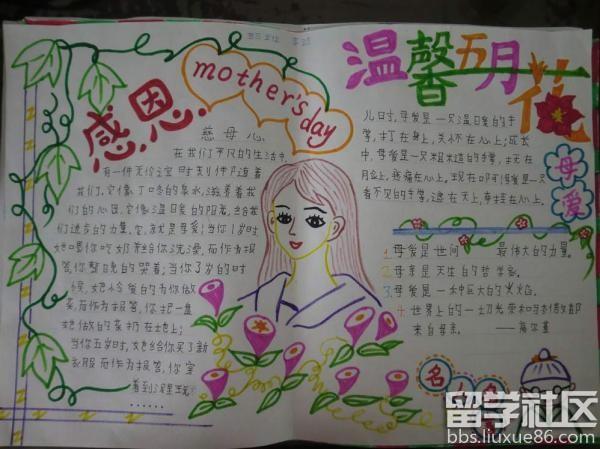 感恩
mother's day
慈母心
在我们平凡的生活中,
有一件无价之宝时刻伴随着
我们,它像丁冬的泉水,滋养着我
们的心田,它像温暖的阳光,给我
们进步的力量,它,就是母爱;当你1岁时
她喂你吃奶并给你洗澡,而作为报
答,你整晚的哭着;当你3岁的时
候,她怜爱的为你做
菜,而作为报答,你把一盘
她做的菜扔在地上;
当你五岁时,她给你买了新
衣服,而作为报答,你穿
着到泥
……
温馨五月花
儿时,母爱是一只温暖的手
掌,打在身上,关怀在心上;成长
中,母爱是一只粗糙的手掌,
疼痛在心上。现在母爱是一只
看不见的手掌,远在天上,牵挂在心上。
母爱
1.母爱是世间最伟大的力量。
2.母亲是天生的哲学家。
3.母爱是一种巨大的火焰。
4.世界上的一切光荣和骄傲都
来自母亲。
——高尔基
名人
留学社区
bbs.liuxue86.com